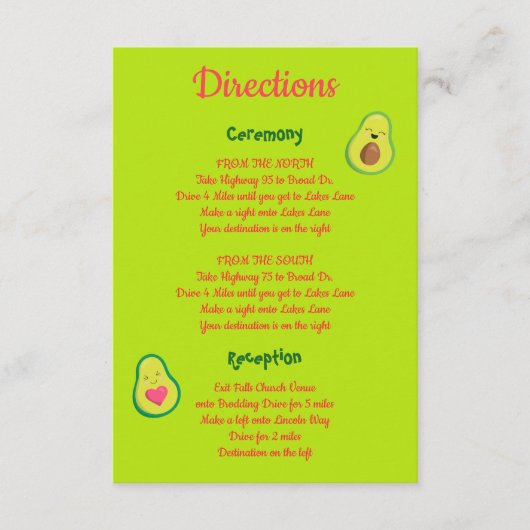 Directions
Ceremony
FROM THE NORTH
Take Highway 95 to Broad Dr.
Drive 4 Miles until you get to Lakes Lane
Make a right onto Lakes Lane
Your destination is on the right
FROM THE SOUTH
Take Highway 75 to Broad Dr.
Drive 4 Miles until you get to Lakes Lane
Make a right onto Lakes Lane
Your destination is on the right
Reception
Exit Falls Church Venue
onto Brodding Drive for 5 miles
Make a left onto Lincoln Way
Drive for 2 miles
Destination on the left